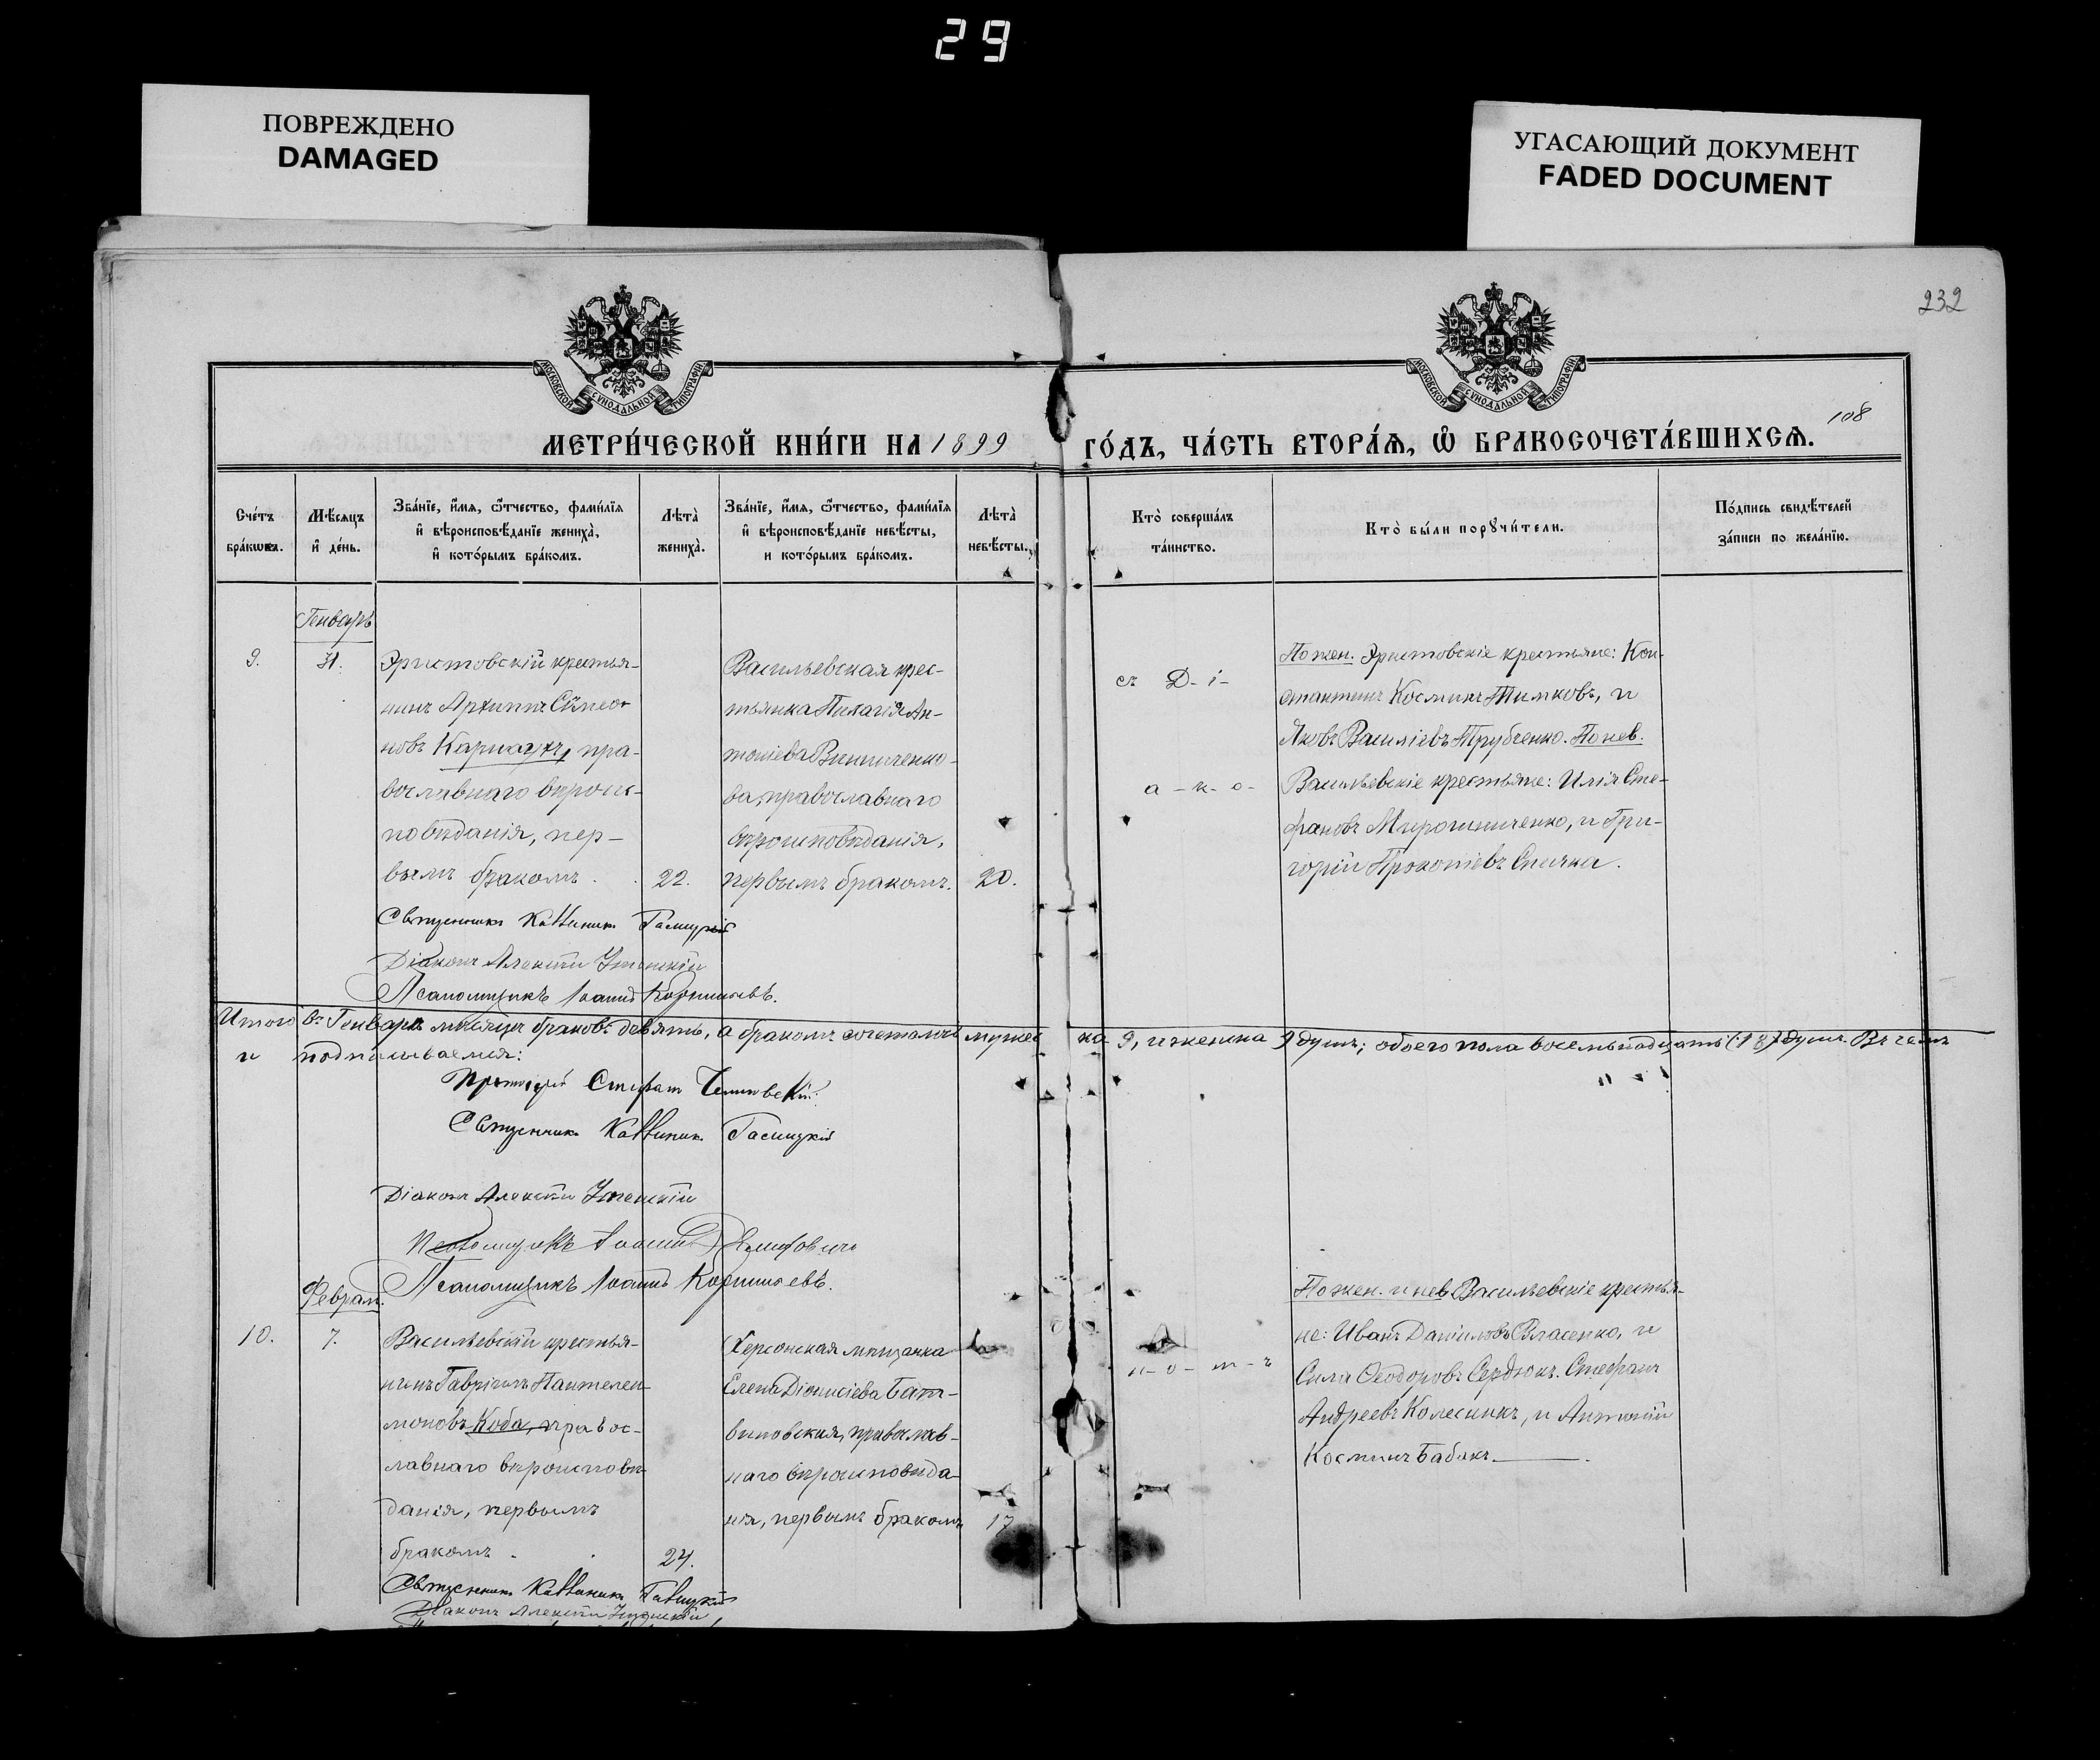 29
ПОВРЕЖДЕНО
DAMAGED
УГАСАЮЩИЙ ДОКУМЕНТ
FADED DOCUMENT
232
МОСКОВСКОЙ СУНОДАЛЬНОЙ ТИПОГРАФІИ
МОСКОВСКОЙ СУНОДАЛЬНОЙ ТИПОГРАФІИ
108
МЕТРИ́ЧЕСКОЙ КНИ́ГИ НА 1899
ГО́ДЪ, ЧА́СТЬ ВТОРА́Ѧ, Ѽ БРАКОСОЧЕТА́ВШИХСѦ.
Сче́тъ
бра́кωвъ.
Мѣ́сѧцъ
и҆ де́нь.
Зва́нїе, и҆́мѧ, ѻ҆́тчество, фами́лїѧ
и҆ вѣроисповѣ́данїе жениха̀,
и҆ кото́рымъ бра́комъ.
Лѣта̀
жениха̀.
Зва́нїе, и҆́мѧ, ѻ҆́тчество, фами́лїѧ
и҆ вѣроисповѣ́данїе невѣ́сты,
и кото́рымъ бра́комъ.
Лѣта̀
невѣ́сты.
Кто̀ соверша́лъ
та́инство.
Кто̀ бы́ли порꙋчи́тели.
По́дпись свидѣ́телей
за́писи по жела́нїю.
Генварь
9.
31.
Эристовскій крестья-
нинъ Архиппъ Сѵмео-
новъ
пра-
вославнаго вѣроис-
повѣданія, пер-
вымъ бракомъ.
22.
Васильевская крес-
тьянка Пелагія Ан-
тоніева Винниченко-
ва, православнаго
вѣроисповѣданія,
первымъ бракомъ.
20.
съ Д-і-
а-к-о-
По жен. Эристовскіе крестьяне: Кон-
стантинъ Косминъ Тимковъ, и
Яковъ Василіевъ Трубченко. По нев.
Васильевскіе крестьяне: Илія Сте-
фановъ Мирошниченко, и Гри-
горій Прокопіевъ Спичка.
Священникъ Каллиникъ
Діаконъ Алексій
Псаломщикъ Іоаннъ Корнильевъ.
Итого въ Генварѣ мѣсяцѣ браковъ девять, а бракомъ сочеталось мужес
ка 9, и женска 9 душъ; обоего пола восемьнадцать (18) душъ. Въ чемъ
и подписываемся:
Протоіерей Стефанъ
Священникъ Каллиникъ
Діаконъ Алексій
Псаломщикъ Іоаннъ
Псаломщикъ Іоаннъ Корнильевъ.
Феврал.
10.
7.
Васильевскій крестья-
нинъ Гавріилъ Пантелеи-
моновъ Коба, правос-
лавнаго вѣроисповѣ-
данія, первымъ
бракомъ.
24.
Херсонская мѣщанка
Елена Діонисіева Бат-
виновская, православ-
наго вѣроисповѣда-
нія, первымъ бракомъ
17
н-о-м-ъ
По жен. и нев. Васильевскіе крестья-
не: Иванъ Даніиловъ Власенко, и
Сила Ѳеодоровъ Сердюкъ. Стефанъ
Андреевъ Колесникъ, и Антоній
Косминъ Бабакъ.
Священникъ Каллиникъ
Діаконъ Алексій